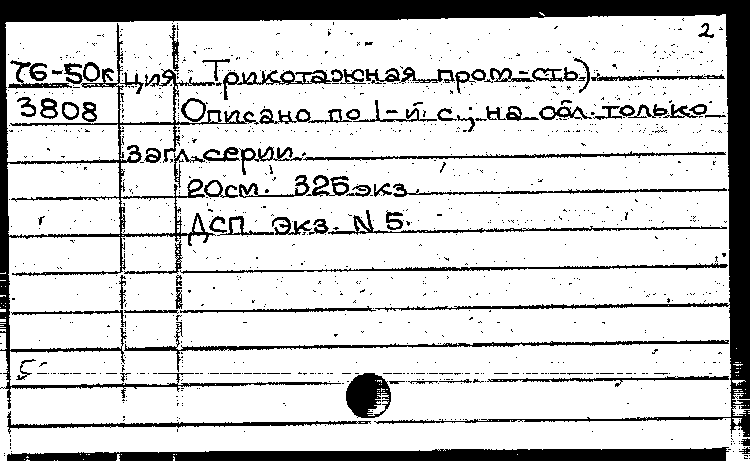 2
76-50к ция. Трикотажная пром-сть).
3808 Описано по 1-й с.; на обл. только
загл. серии.
20см. 325экз.
ДСП Экз. N 5.
5